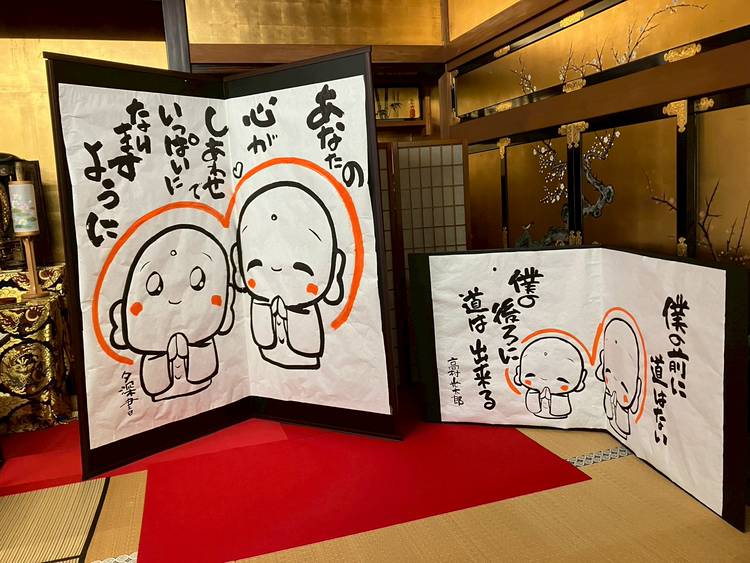 あなたの
心が
しあわせで
いっぱいに
ように
僕の前に
道はない
僕の後ろに
道は出来る
高村光太郎